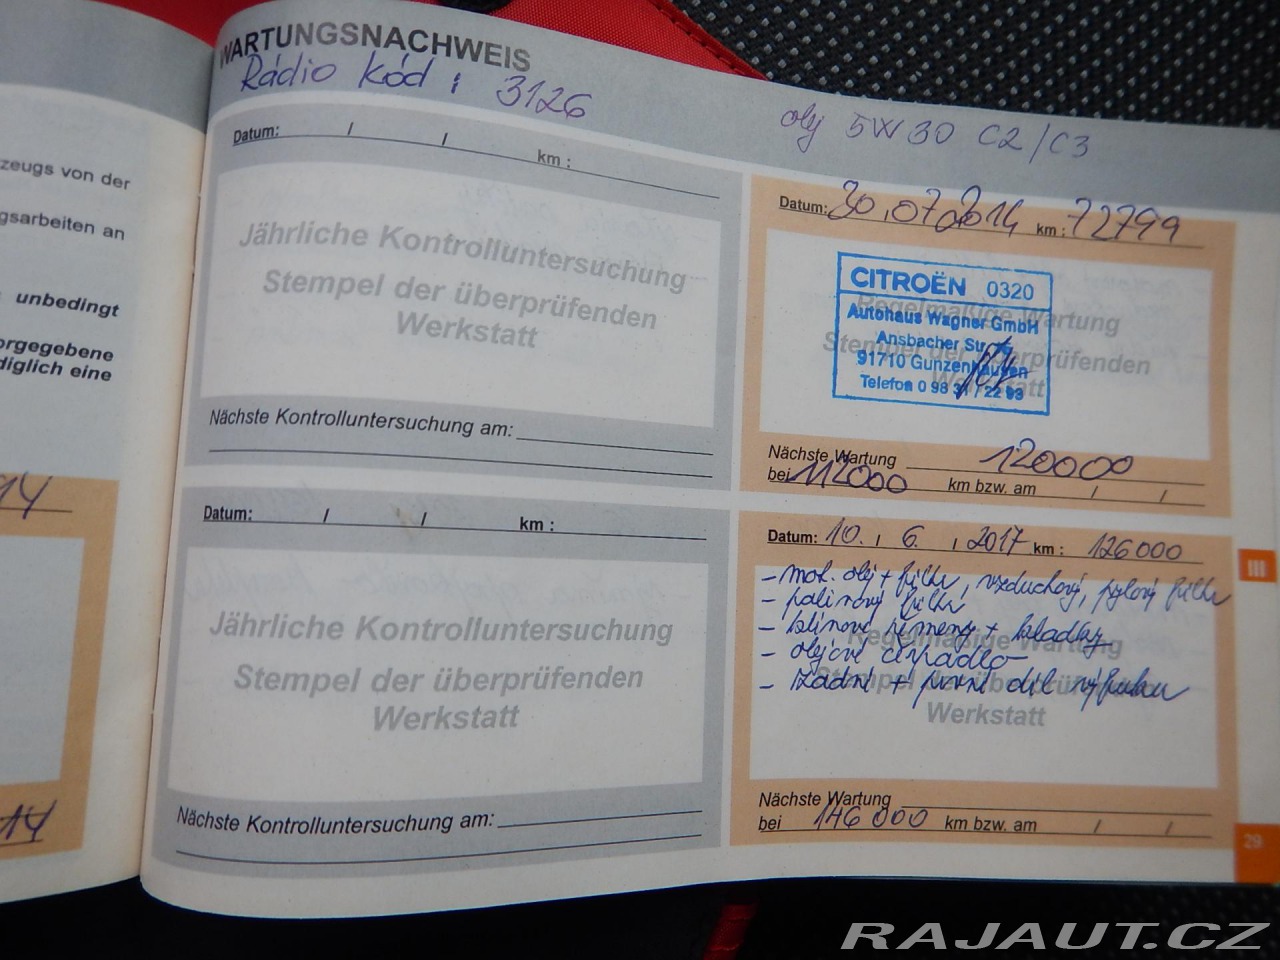 zeugs von der
gsarbeiten an
unbedingt
orgegebene
diglich eine
14
14
WARTUNGSNACHWEIS
Rádio kód : 3126
olej 5W30 C2/C3
Datum: / / km :
Jährliche Kontrolluntersuchung
Stempel der überprüfenden
Werkstatt
Nächste Kontrolluntersuchung am:
Datum: 30.07.2014 km : 72799
CITROËN 0320
Autohaus Wagner GmbH
Ansbacher Str.
91710 Gunzenhausen
Telefon 0 98 31 / 22 93
Regelmäßige Wartung
Stempel der überprüfenden
Werkstatt
Nächste Wartung 120000
bei 112000 km bzw. am / /
Datum: / / km :
Jährliche Kontrolluntersuchung
Stempel der überprüfenden
Werkstatt
Nächste Kontrolluntersuchung am:
Datum: 10. / 6. / 2017 km : 126000
- mot. olej + filtr, vzduchový, pylový filtr
- palivový filtr
- klínové řemeny + kladky
- olejové čerpadlo
- zadní + první díl výfuku
Regelmäßige Wartung
Stempel der überprüfenden
Werkstatt
Nächste Wartung
bei 146 000 km bzw. am / /
III
29
RAJAUT.CZ